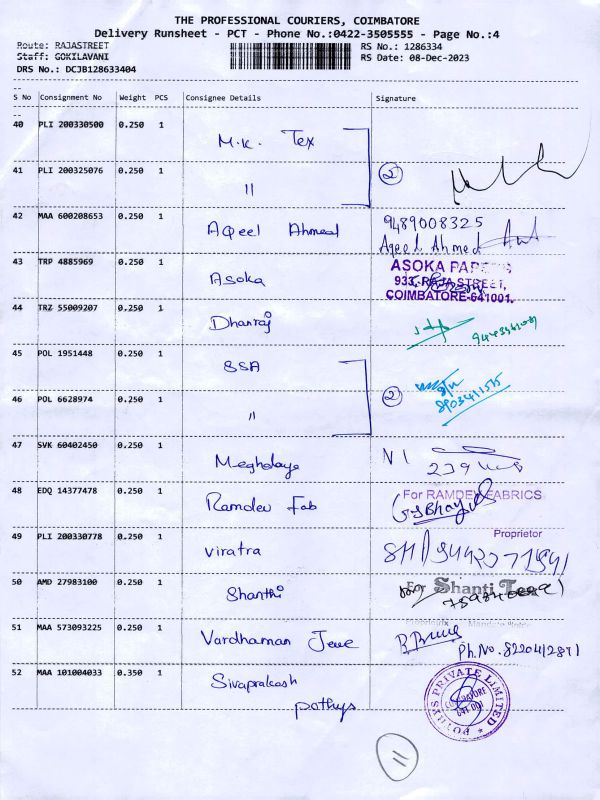 THE PROFESSIONAL COURIERS, COIMBATORE
Delivery Runsheet - PCT - Phone No.:0422-3505555 - Page No.:4
Route: RAJASTREET
RS No.: 1286334
Staff: GOKILAVANI
RS Date: 08-Dec-2023
DRS No.: DCJB128633404
S No Consignment No Weight PCS Consignee Details Signature
40 PLI 200330500 0.250 1 M.K. Tex
41 PLI 200325076 0.250 1 〃 2
42 MAA 600208653 0.250 1 Aqeel Ahmed 9489008325
Aqeel Ahmed
43 TRP 4885969 0.250 1 Asoka ASOKA PAPERS
933, RAJA STREET,
COIMBATORE-641001.
44 TRZ 55009207 0.250 1 Dhanraj
45 POL 1951448 0.250 1 SSA
46 POL 6628974 0.250 1 〃 2 8903411515
47 SVK 60402450 0.250 1 Meghalaya
48 EDQ 14377478 0.250 1 Ramdev Fab For RAMDEV FABRICS
Proprietor
49 PLI 200330778 0.250 1 Viratra
50 AMD 27983100 0.250 1 Shanthi For Shanti
51 MAA 573093225 0.250 1 Vardhaman Jewe
Ph.No. 8220412871
52 MAA 101004033 0.350 1 Sivaprakash
pothys
POTHYS PRIVATE LIMITED
COIMBATORE
641 001
11